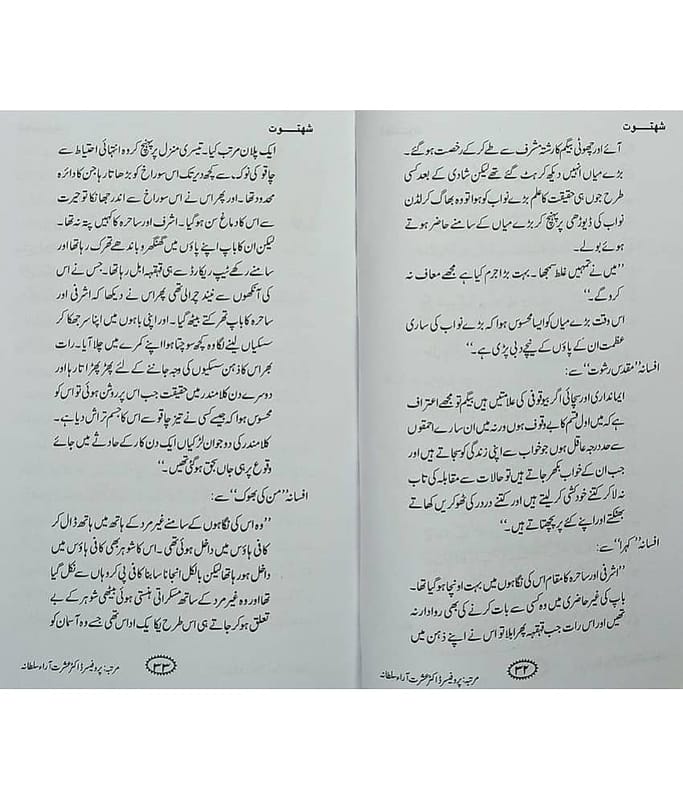 شہتوت
آئے اور چھوٹی بیگم کا رشتہ مشرف سے طے کر کے رخصت ہو گئے۔
بڑے میاں انہیں دیکھ کر ہٹ گئے تھے لیکن شادی کے بعد کسی
طرح جوں ہی حقیقت کا علم بڑے نواب کو ہوا تو وہ بھاگ کر لڈن
نواب کی ڈیوڑھی پر پہنچ کر بڑے میاں کے سامنے حاضر ہوتے
ہوئے بولے۔
”میں نے تمہیں غلط سمجھا۔ بہت بڑا جرم کیا ہے مجھے معاف نہ
کرو گے۔“
اس وقت بڑے میاں کو ایسا محسوس ہوا کہ بڑے نواب کی ساری
عظمت ان کے پاؤں کے نیچے دبی پڑی ہے۔“
افسانہ ”مقدس رشوت“ سے:
ایمانداری اور سچائی اگر بیوقوفی کی علامتیں ہیں بیگم تو مجھے اعتراف
ہے کہ میں اول قسم کا بے وقوف ہوں ورنہ میں ان سارے احمقوں
سے حد درجہ عاقل ہوں جو خواب سے اپنی زندگی کو سجاتے ہیں اور
جب ان کے خواب بکھر جاتے ہیں تو حالات سے مقابلہ کی تاب
نہ لا کر کتنے خودکشی کر لیتے ہیں اور کتنے دردر کی ٹھوکریں کھاتے
بھٹکتے اور اپنے کئے پر پچھتاتے ہیں۔“
افسانہ ”کہرا“ سے:
”اشرفی اور ساحرہ کا مقام اس کی نگاہوں میں بہت اونچا ہو گیا تھا۔
باپ کی غیر حاضری میں وہ کسی سے بات کرنے کی بھی روادار نہ
تھیں اور اس رات جب قہقہہ پھر ابلا تو اس نے اپنے ذہن میں
۳۲
مرتبہ: پروفیسر ڈاکٹر عشرت آراء سلطانہ
شہتوت
ایک پلان مرتب کیا۔ تیسری منزل پر پہنچ کر وہ انتہائی احتیاط سے
چاقو کی نوک سے کچھ دیر تک اس سوراخ کو بڑھاتا رہا جن کا دائرہ
محدود تھا۔ اور پھر اس نے اس سوراخ سے اندر جھانکا تو حیرت
سے اس کا دماغ سن ہو گیا۔ اشرف اور ساحرہ کا کہیں پتہ نہ تھا۔
لیکن ان کا باپ اپنے پاؤں میں گھنگھرو باندھے تھرک رہا تھا اور
سامنے رکھے ٹیپ ریکارڈ سے ہی قہقہہ ابل رہا تھا۔ جس نے اس
کی آنکھوں سے نیند چرالی تھی پھر اس نے دیکھا کہ اشرفی اور
ساحرہ کا باپ تھرکتے بیٹھ گیا۔ اور اپنی باہوں میں اپنا سر جھکا کر
سسکیاں لینے لگا وہ کچھ سوچتا ہوا اپنے کمرے میں چلا آیا۔ رات
بھر اس کا ذہن سسکیوں کی وجہ جاننے کے لئے پھڑپھڑاتا رہا اور
دوسرے دن کلامندر میں حقیقت جب اس پر روشن ہوئی تو اس کو
محسوس ہوا کہ جیسے کسی نے تیز چاقو سے اس کا جسم تراش دیا ہے۔
کلامندر کی دو جوان لڑکیاں ایک دن کار کے حادثے میں جائے
وقوع پر ہی جاں بحق ہو گئی تھیں۔“
افسانہ ”من کی بھوک“ سے:
”وہ اس کی نگاہوں کے سامنے غیر مرد کے ہاتھ میں ہاتھ ڈال کر
کافی ہاؤس میں داخل ہوئی تھی۔ اس کا شوہر بھی کافی ہاؤس میں
داخل ہو رہا تھا لیکن بالکل انجانا سا بنا کافی پی کر وہاں سے نکل گیا
تھا اور وہ غیر مرد کے ساتھ مسکراتی ہنستی ہوئی بیٹھی شوہر کے بے
تعلق ہو کر جاتے ہی اس طرح یکا یک اداس تھی جسے وہ آسمان کو
۳۳
مرتبہ: پروفیسر ڈاکٹر عشرت آراء سلطانہ